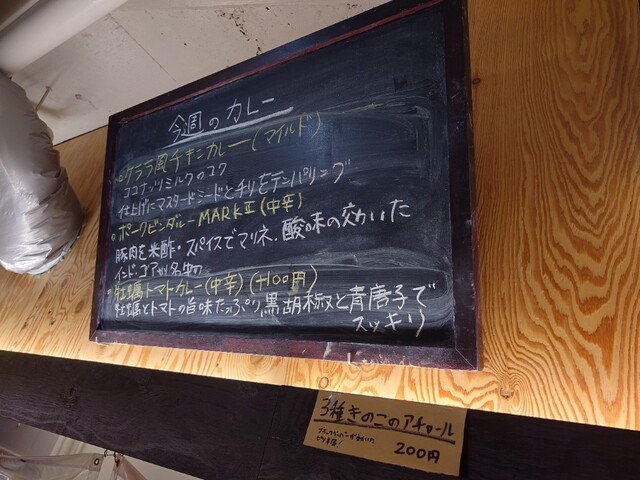 今週のカレー
○ケララ風チキンカレー(マイルド)
ココナッツミルクのコク
仕上げにマスタードシードとチリをテンパリング
○ポークビンダルーMARKⅡ(中辛)
豚肉を米酢・スパイスでマリネ、酸味の効いた
インド・ゴア州名物の
○牡蠣トマトカレー(中辛)(+100円)
牡蠣とトマトの旨味たっぷり、黒胡椒と青唐子で
スッキリ
3種きのこのアチャール
200円